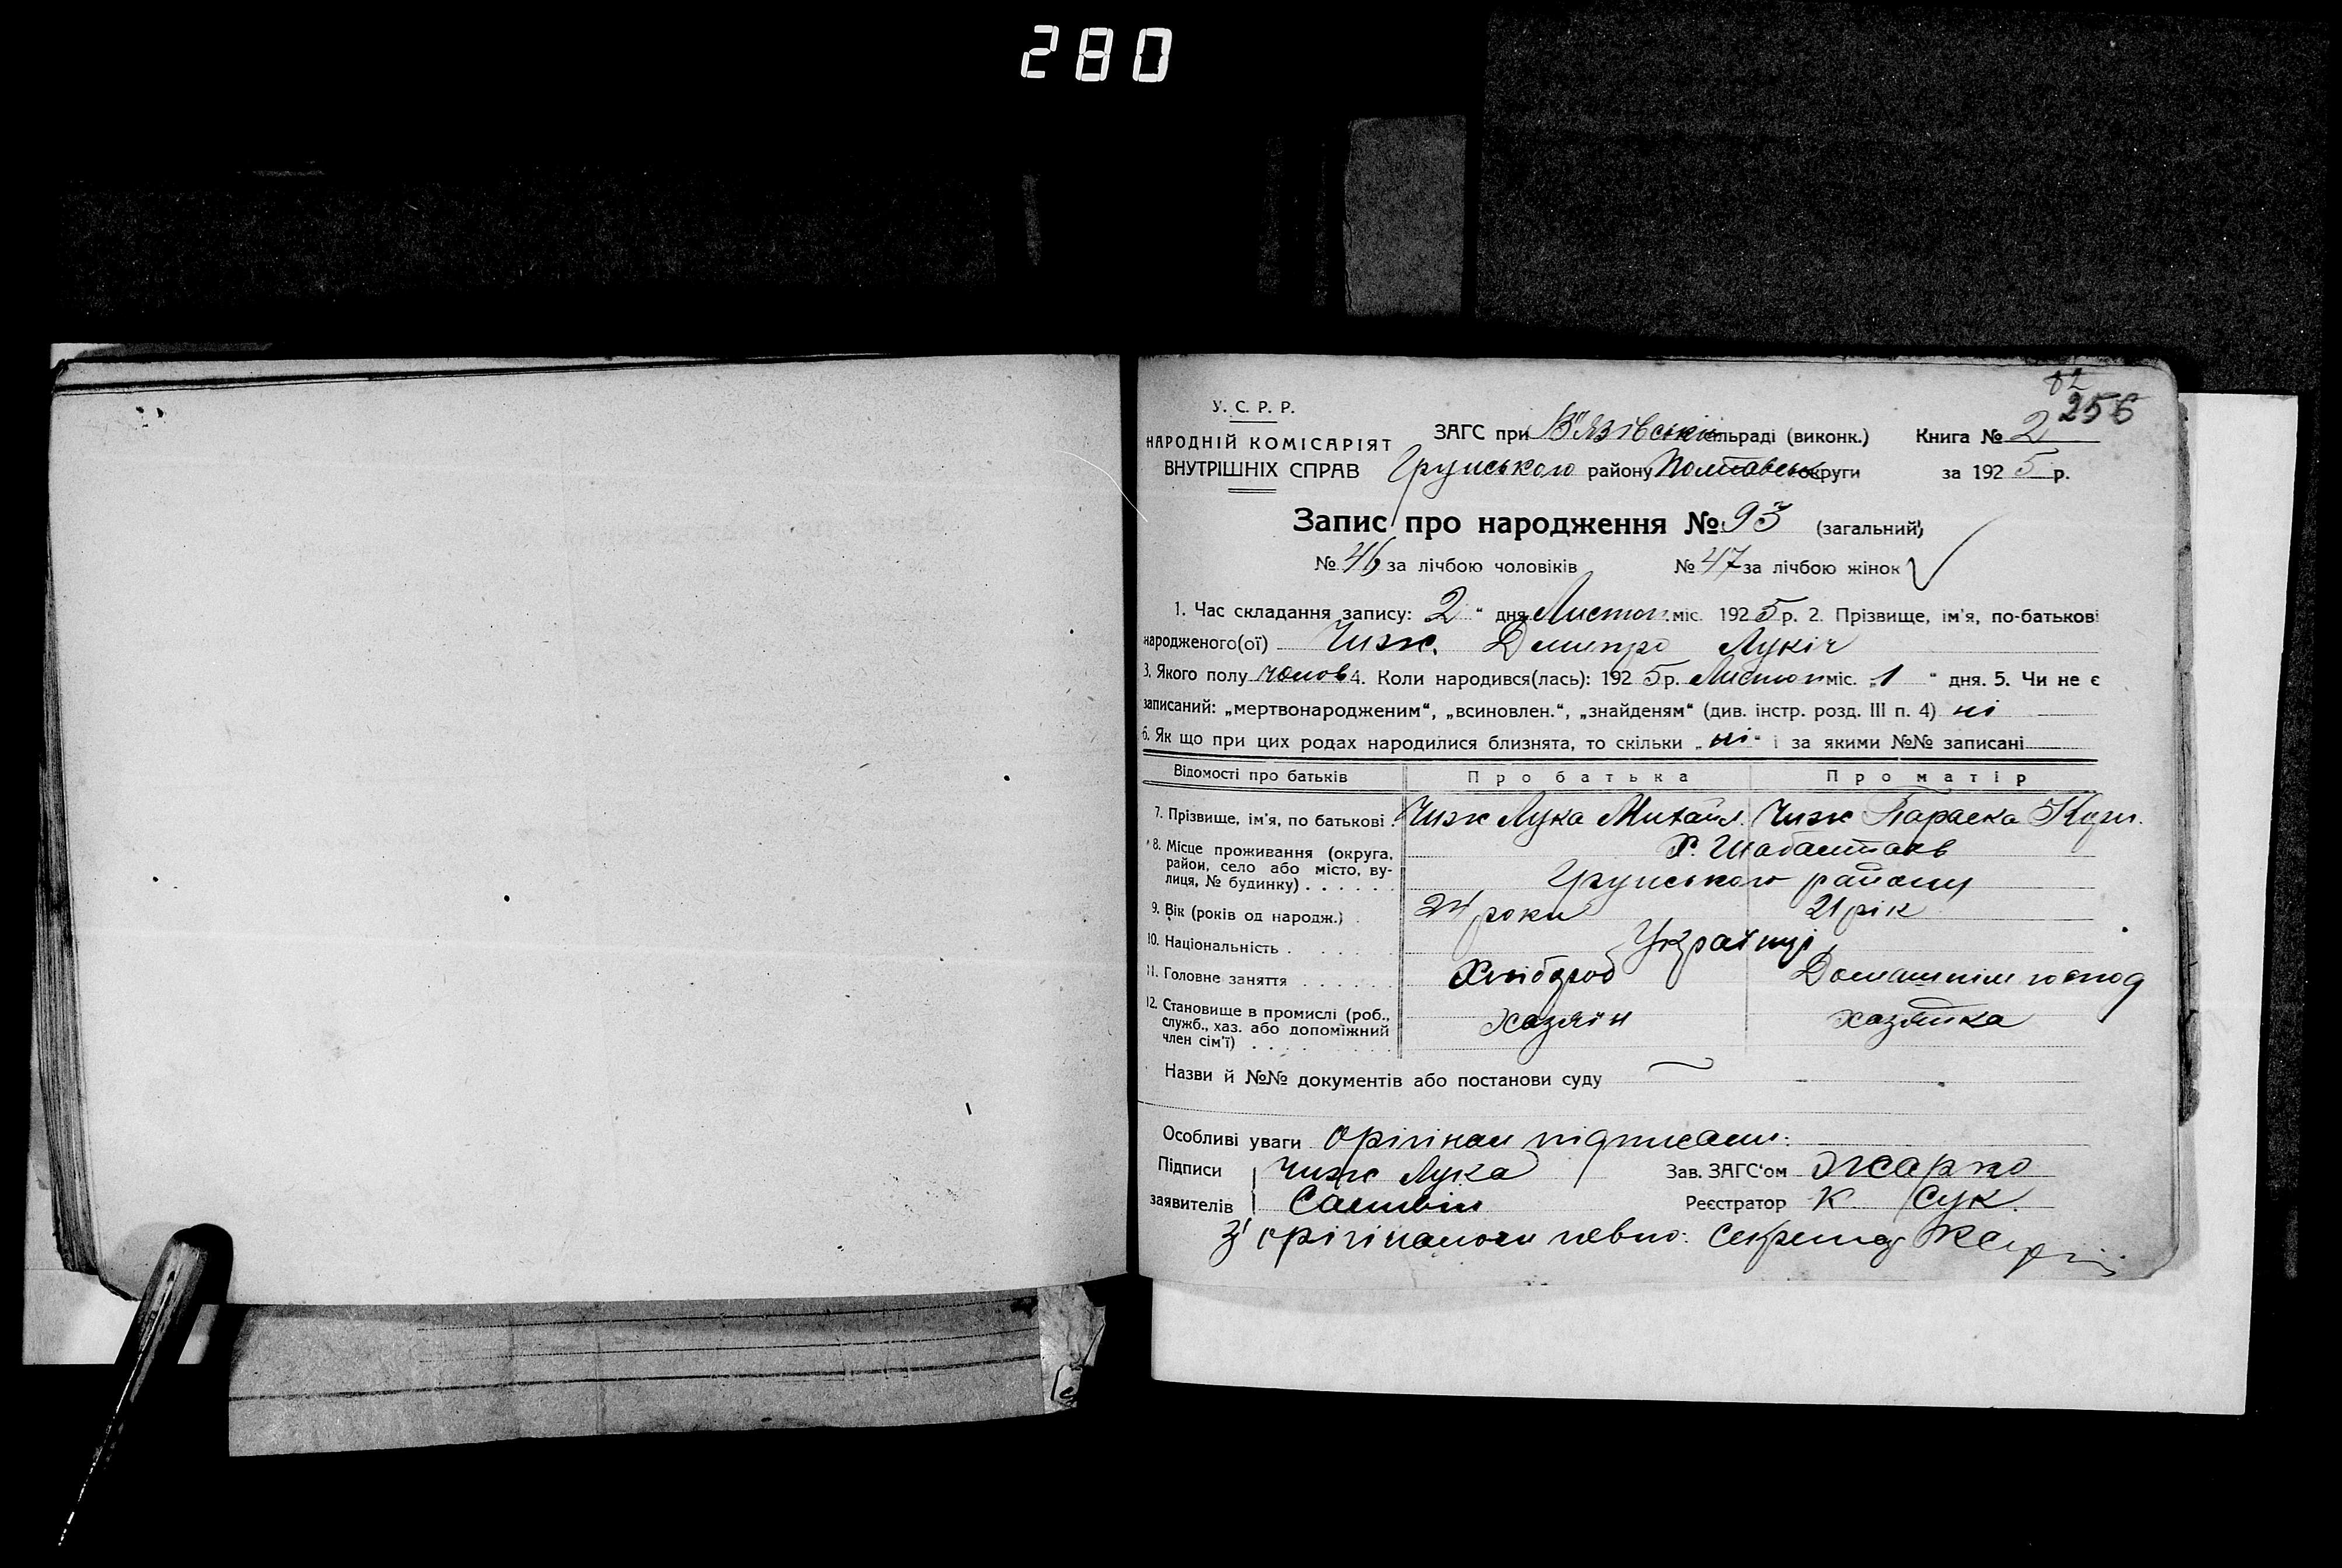 280
82
256
У. С. Р. Р.
НАРОДНІЙ КОМІСАРІЯТ
ВНУТРІШНІХ СПРАВ
ЗАГС при В'язівській сільраді (виконк.) Книга № 2
Грунського району Полтавськ округи за 1925 р.
Запис про народження № 93 (загальний)
№ 46 за лічбою чоловіків № 47 за лічбою жінок
1. Час складання запису: 2 " дня Листоп. міс. 1925 р. 2. Прізвище, ім'я, по-батькові
народженого(ої) Чиж. Дмитро Лукіч
3. Якого полу чолов 4. Коли народився(лась): 1925 р. Листоп міс. „1 " дня. 5. Чи не є
записаний: „мертвонародженим", „всиновлен.", „знайденям" (див. інстр. розд. III п. 4) ні
6. Як що при цих родах народилися близнята, то скільки „ні" і за якими №№ записані
Відомості про батьків Про батька Про матір
7. Прізвище, ім'я, по батькові . Чиж Лука Михайл. Чиж Параска
8. Місце проживання (округа, район, село або місто, вулиця, № будинку) . . . . . . Х.
Грунського району
9. Вік (років од народж.) . 24 роки 21 рік
10. Національність . . . . . Українці
11. Головне заняття . . . . . . Хлібороб Домашнім господ
12. Становище в промислі (роб., служб., хаз. або допоміжний член сім'ї) . . . . Хазяїн хазяйка
Назви й №№ документів або постанови суду
Особливі уваги Орігінал підписали:
Підписи Чиж Лука Зав. ЗАГС'ом
заявителів Реєстратор К. Сук.
З орігіналом певно: Секретар